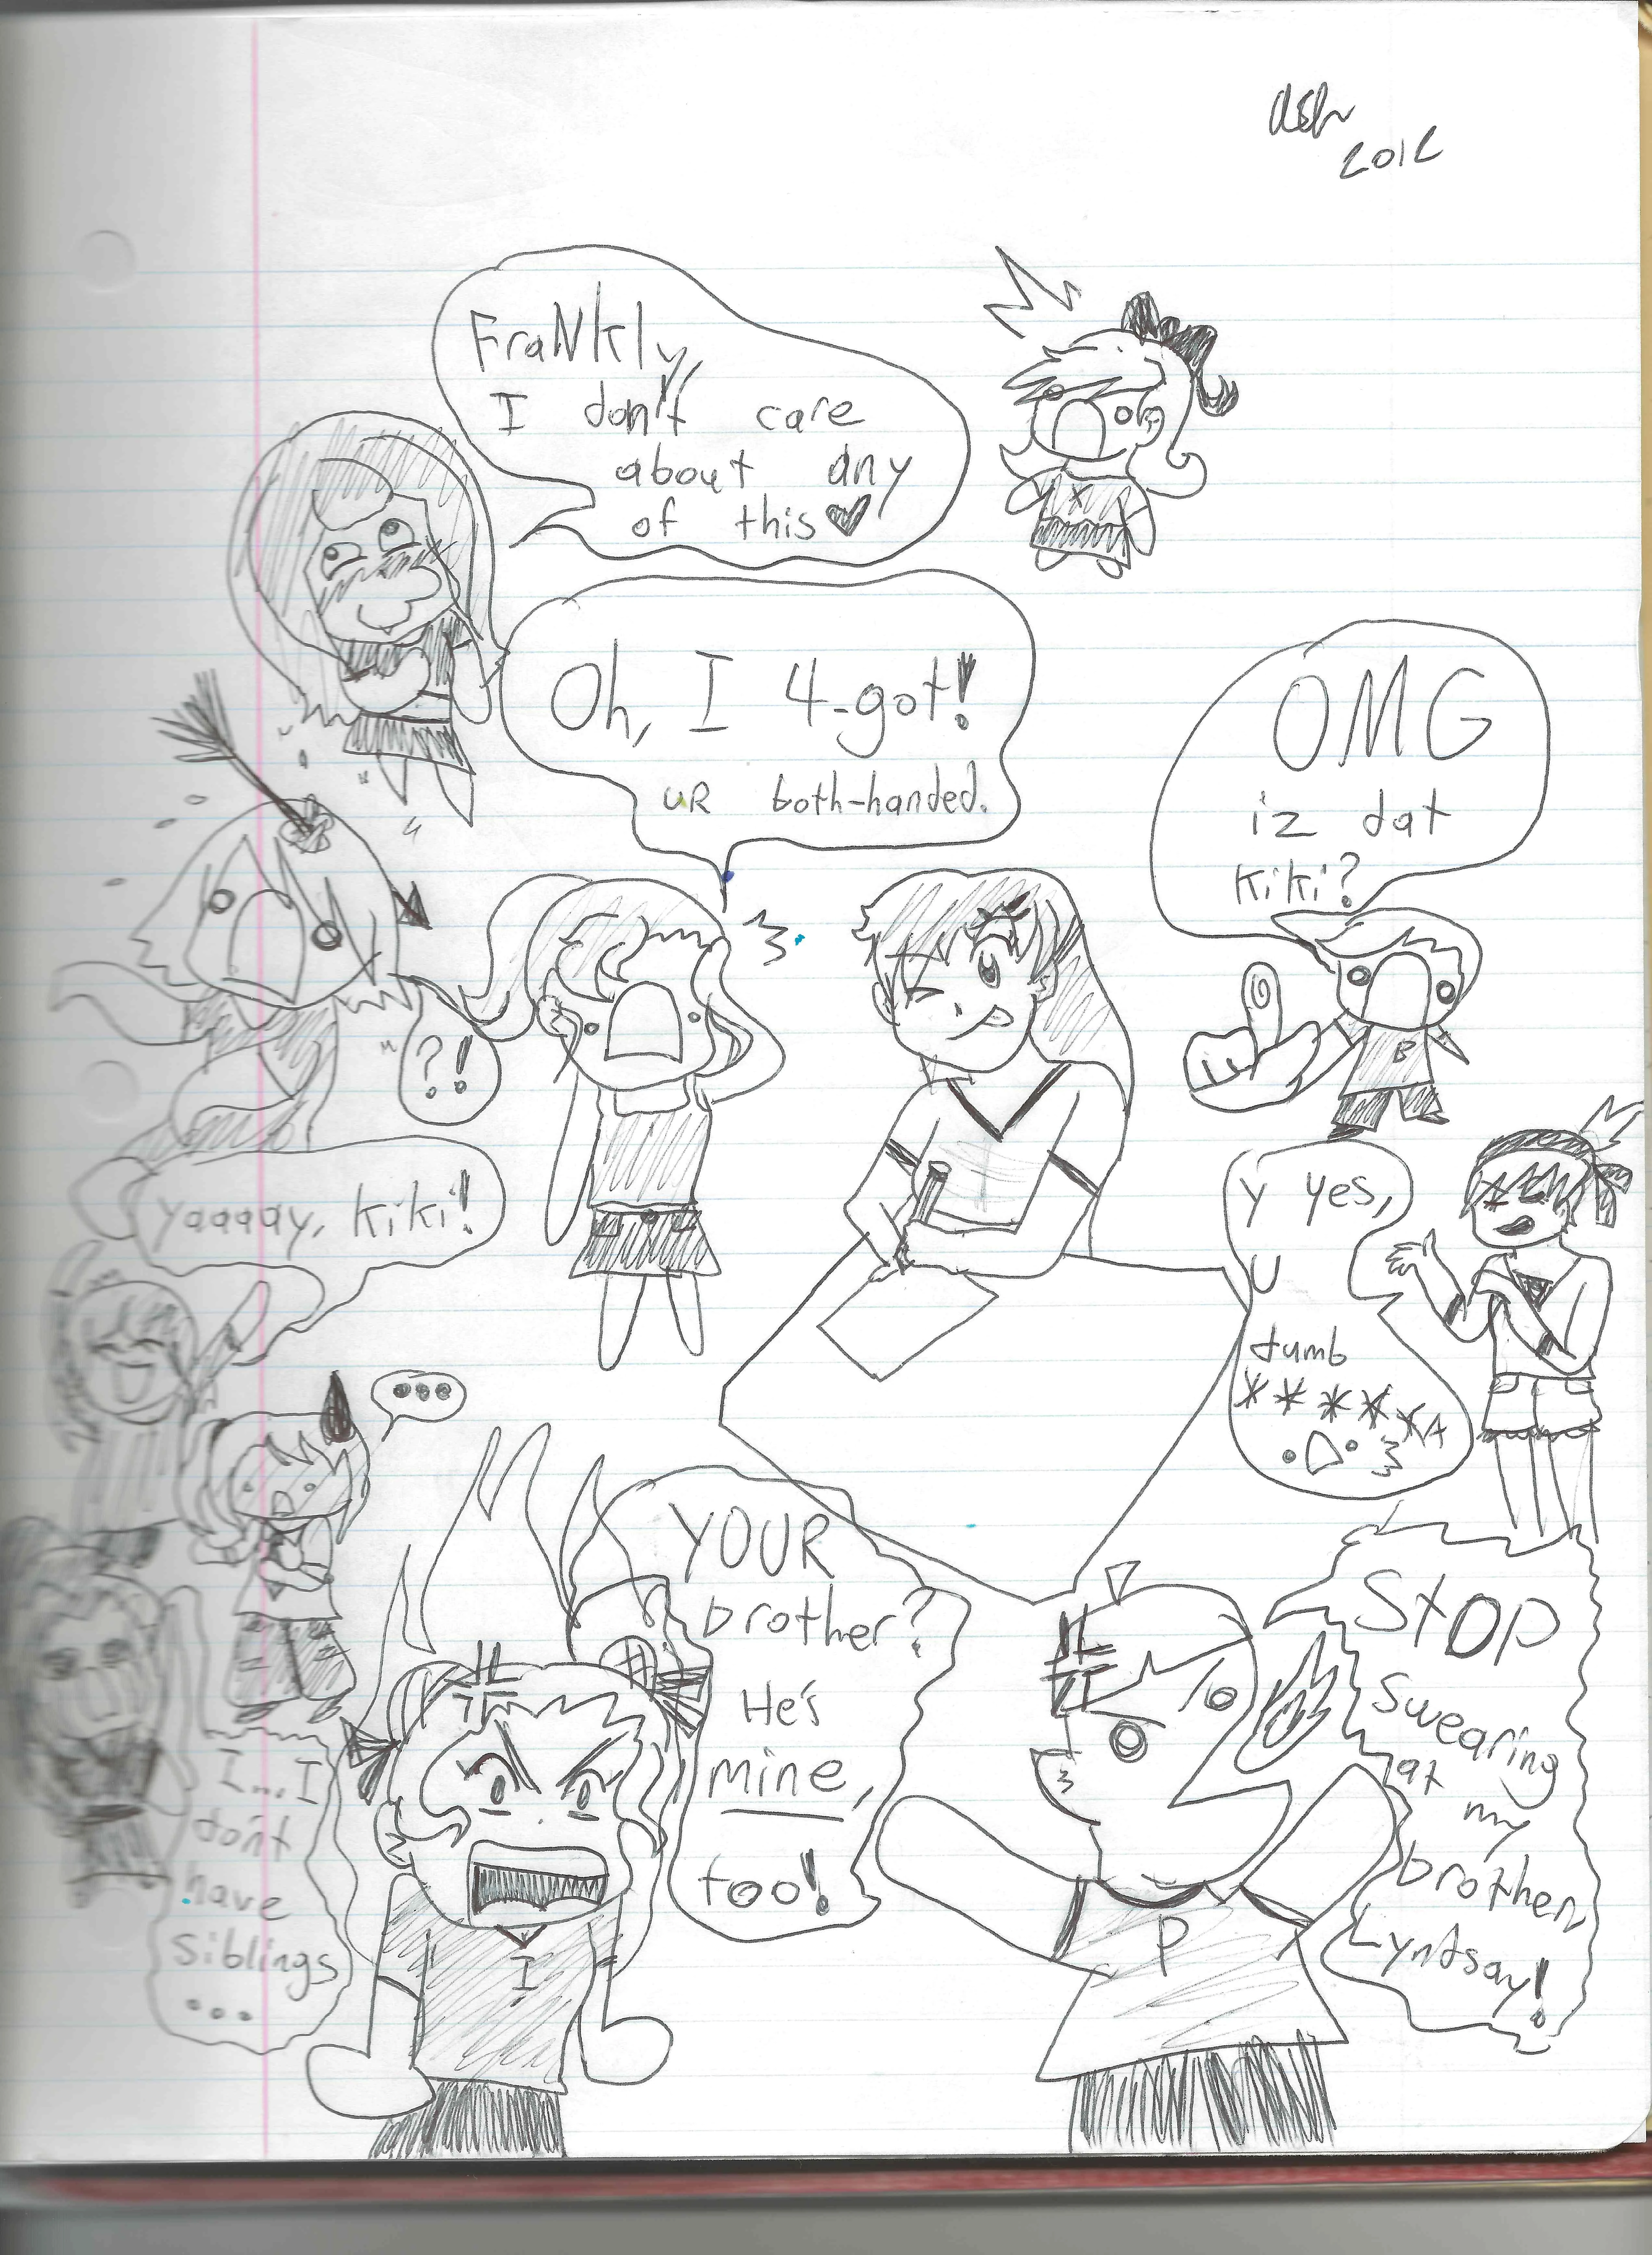 Ash
2012
FraNkly,
I don't care
about any
of this♥
Oh, I 4-got!
uR both-handed.
OMG
iz dat
Kiki?
?!
yaaaay, kiki!
B
y yes,
U
dumb
******
...
YOUR
brother?
He's
mine,
too!
Stop
swearing
at
my
brother,
Lyndsay!
I...I
don't
have
siblings
...
I
P